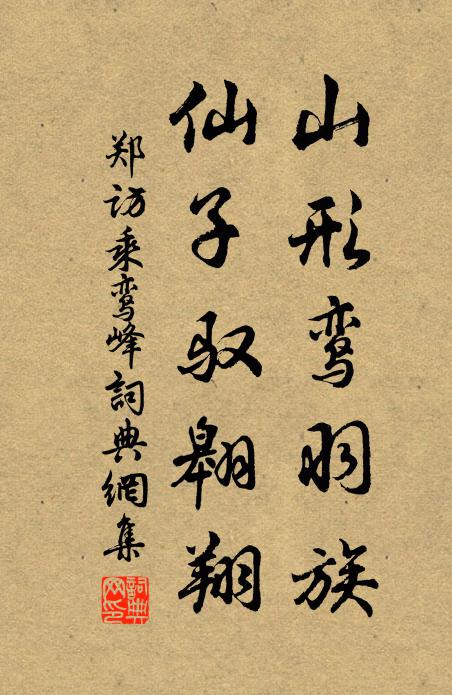 山形鸾羽族
仙子驭翱翔
郑访乘鸾峰詞典網集
詞典网印